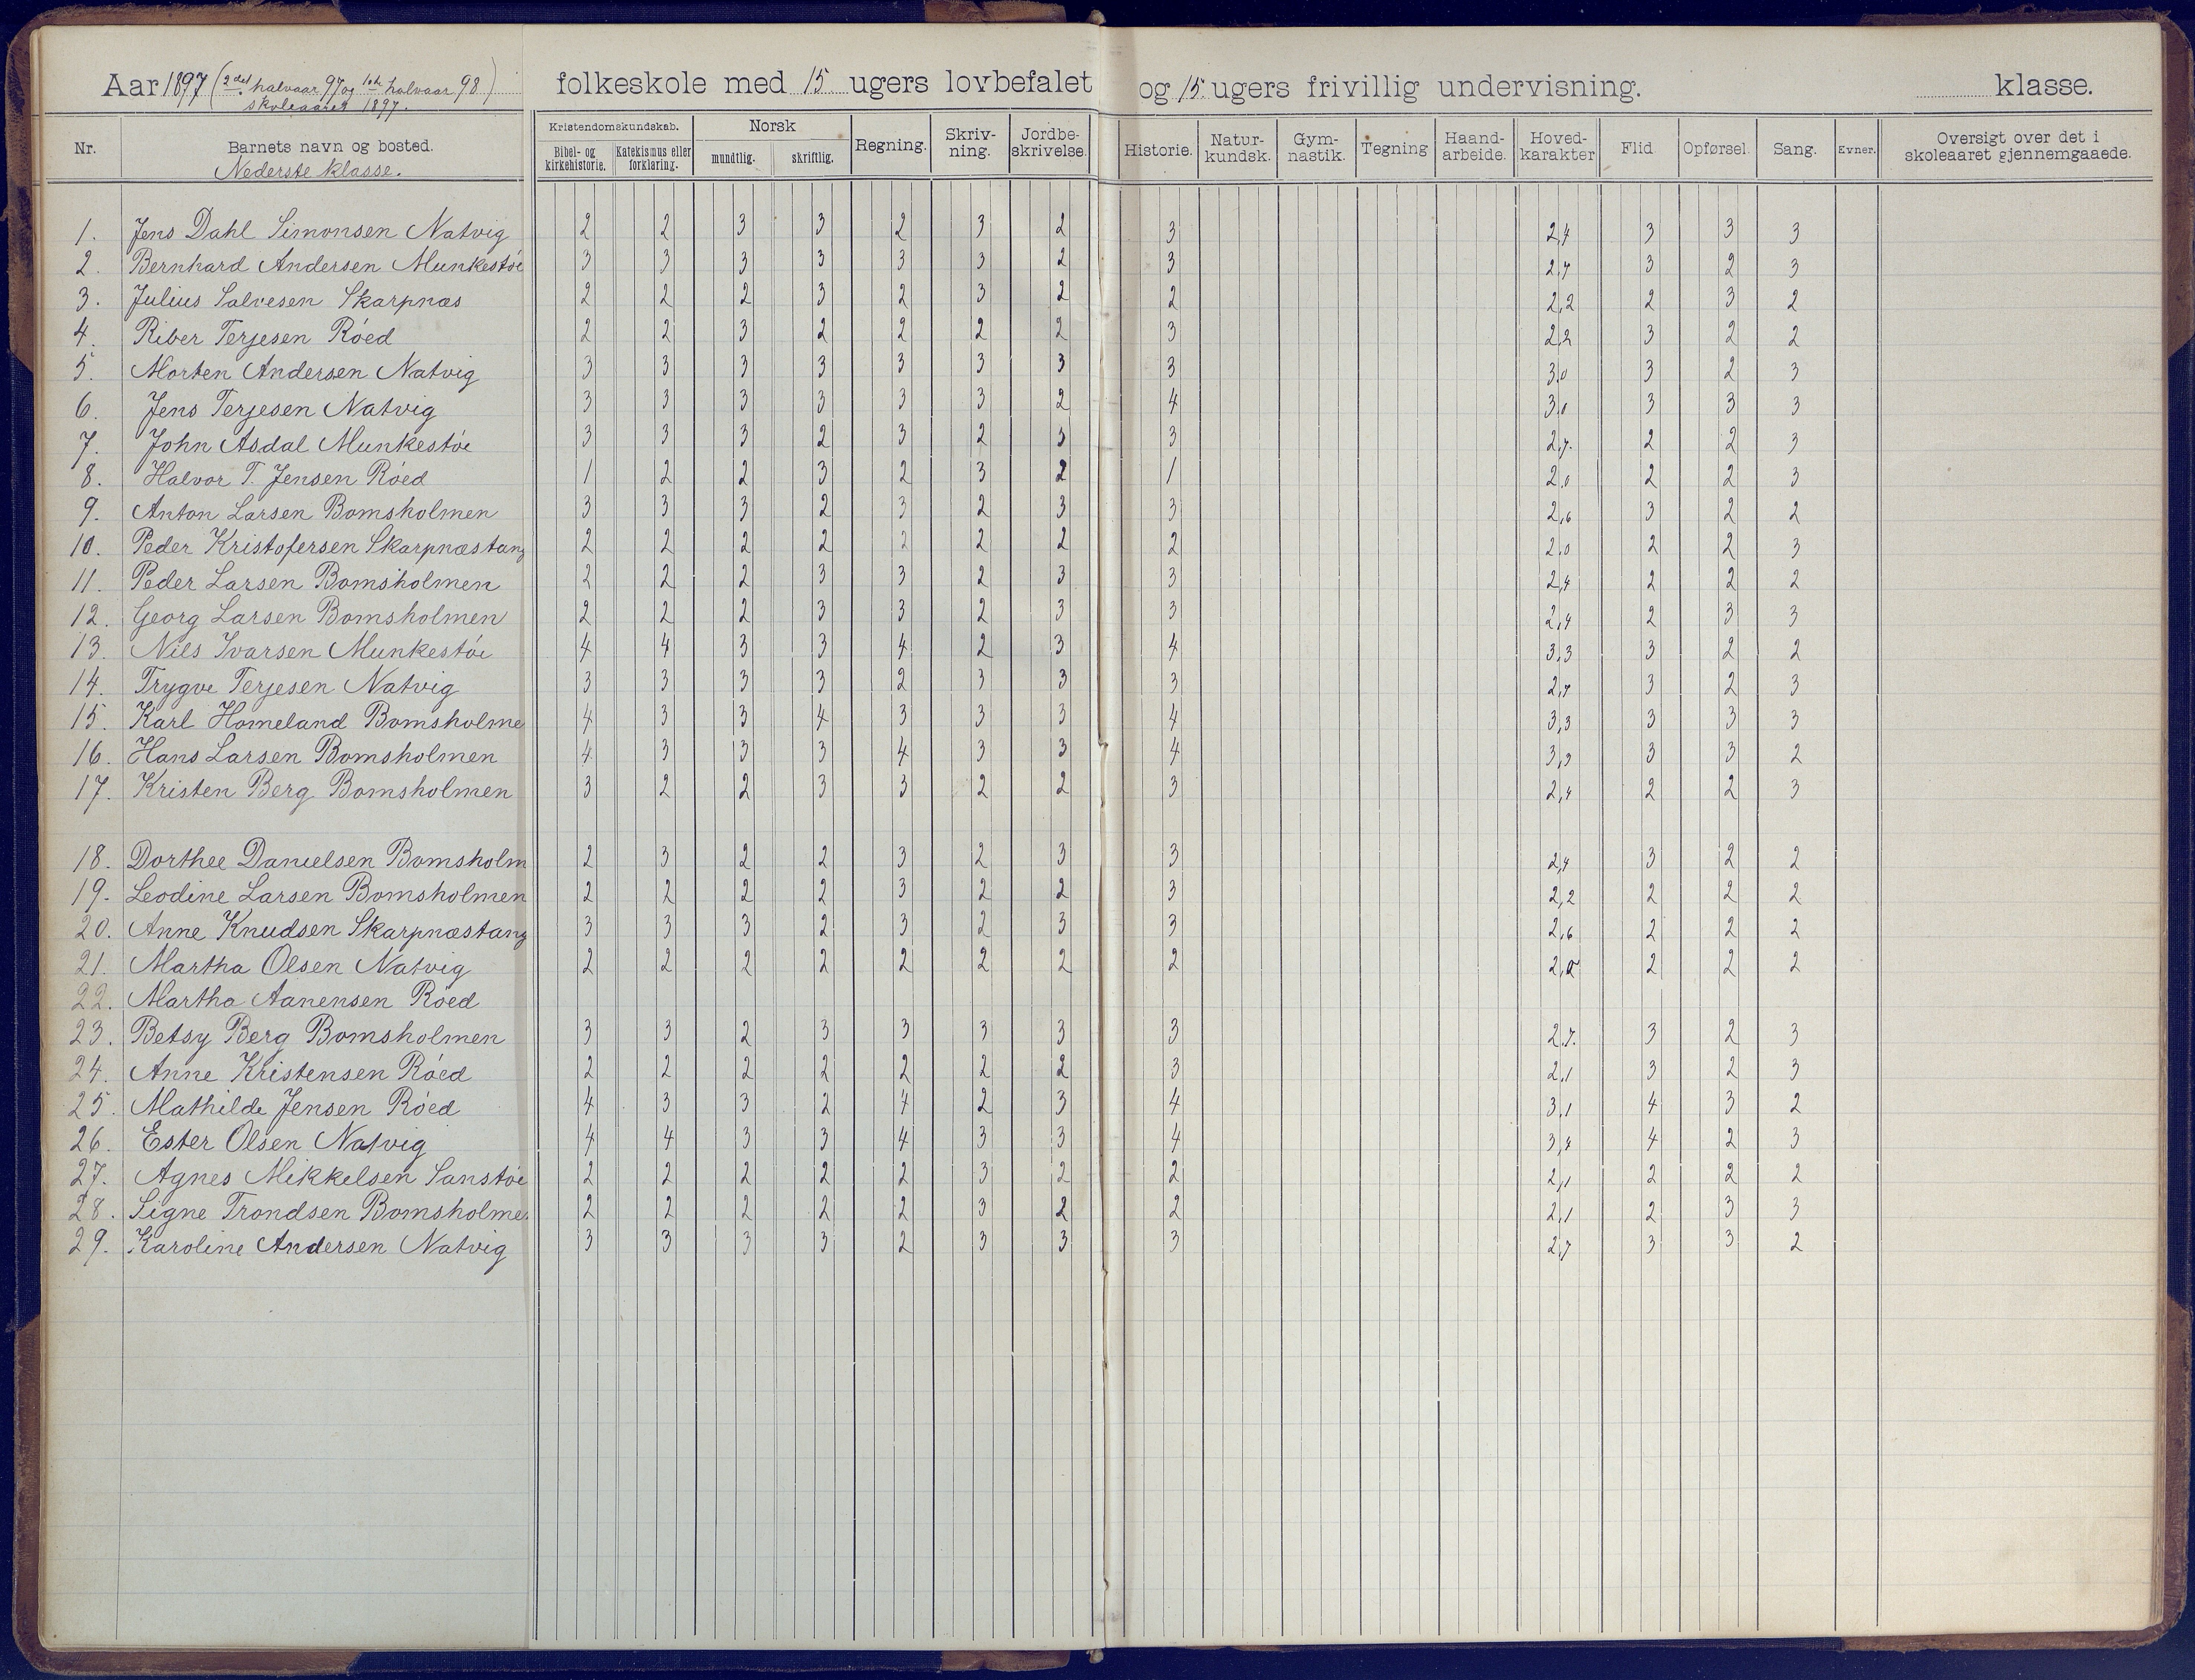 Aar 1897 (2det halvaar 97 og 1ste halvaar 98) folkeskole med 15 ugers lovbefalet og 15 ugers frivillig undervisning. klasse.
skoleaaret 1897.
Nr. Barnets navn og bosted. Kristendomskundskab. Norsk Regning. Skriv-ning. Jordbe-skrivelse. Historie. Natur-kundsk. Gym-nastik. Tegning Haand-arbeide. Hoved-karakter Flid Opførsel. Sang. Evner. Oversigt over det i skoleaaret gjennemgaaede.
Nederste klasse. Bibel- og kirkehistorie. Katekismus eller forklaring. mundtlig. skriftlig.
1. Jens Dahl Simonsen Natvig 2 2 3 3 2 3 2 3 2,4 3 3 3
2. Bernhard Andersen Munkestøe 3 3 3 3 3 3 2 3 2,7 3 2 3
3. Julius Salvesen Skarpnæs 2 2 2 3 2 3 2 2 2,2 2 3 2
4. Riber Terjesen Røed 2 2 3 2 2 2 2 3 2,2 3 2 2
5. Morten Andersen Natvig 3 3 3 3 3 3 3 3 3,0 3 2 3
6. Jens Terjesen Natvig 3 3 3 3 3 3 2 4 3,0 3 3 3
7. John Asdal Munkestøe 3 3 3 2 3 2 3 3 2,7. 2 2 3
8. Halvor T. Jensen Røed 1 2 2 3 2 3 2 1 2,0 2 2 3
9. Anton Larsen Bomsholmen 3 3 3 2 3 2 3 3 2,6 3 2 2
10. Peder Kristofersen Skarpnæstang 2 2 2 2 2 2 2 2 2,0 2 2 3
11. Peder Larsen Bomsholmen 2 2 2 3 3 2 3 3 2,4 2 2 2
12. Georg Larsen Bomsholmen 2 2 2 3 3 2 3 3 2,4 2 3 3
13. Nils Ivarsen Munkestøe 4 4 3 3 4 2 3 4 3,3 3 2 2
14. Trygve Terjesen Natvig 3 3 3 3 2 3 3 3 2,7 3 2 3
15. Karl Homeland Bomsholme 4 3 3 4 3 3 3 4 3,3 3 3 3
16. Hans Larsen Bomsholmen 4 3 3 3 4 3 3 4 3,3 3 3 2
17. Kristen Berg Bomsholmen 3 2 2 3 3 2 2 3 2,4 2 2 3
18. Dorthee Danielsen Bomsholm 2 3 2 2 3 2 3 3 2,4 3 2 2
19. Leodine Larsen Bomsholmen 2 2 2 2 3 2 2 3 2,2 2 2 2
20. Anne Knudsen Skarpnæstang 3 3 3 2 3 2 3 3 2,6 2 2 2
21. Martha Olsen Natvig 2 2 2 2 2 2 2 2 2,0 2 2 2
22. Martha Aanensen Røed
23. Betsy Berg Bomsholmen 3 3 2 3 3 3 3 3 2.7. 3 2 3
24. Anne Kristensen Røed 2 2 2 2 2 2 2 3 2,1 3 2 3
25. Mathilde Jensen Røed 4 3 3 2 4 2 3 4 3,1 4 3 2
26. Ester Olsen Natvig 4 4 3 3 4 3 3 4 3,4 4 2 3
27. Agnes Mikkelsen Sanstøe 2 2 2 2 2 3 2 2 2,1 2 2 2
28. Signe Trondsen Bomsholme 2 2 2 2 2 3 2 2 2,1 2 3 3
29. Karoline Andersen Natvig 3 3 3 3 2 3 3 3 2,7 3 3 2